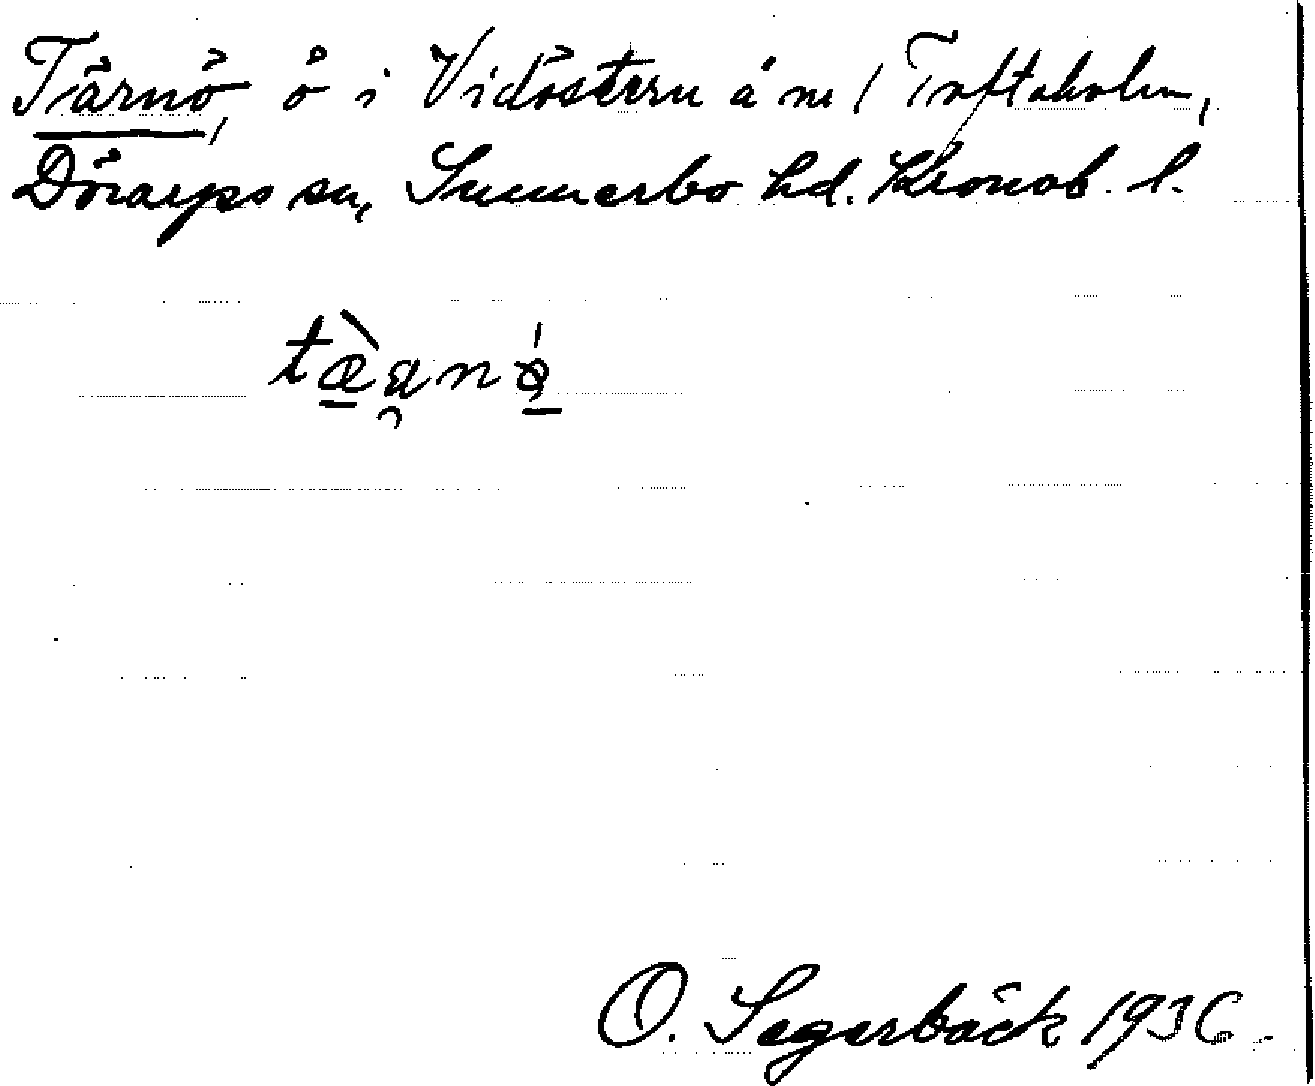 Tärnö, ö i Vidöstern å m/ Toftaholm,
Dörarps sn, Sunnerbo hd. Kronob. l.
O. Segerbäck 1936.